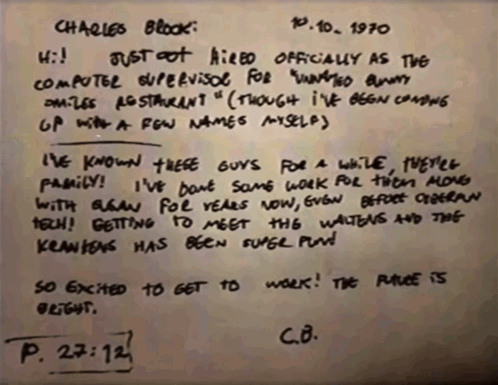 CHARLES BROOK: 10.10. 1970
Hi! JUST GOT HIRED OFFICIALLY AS THE
COMPUTER SUPERVISOR FOR "UNNAMED BUNNY
SMILES RESTAURANT" (THOUGH I'VE BEEN COMING
UP WITH A FEW NAMES MYSELF)
I'VE KNOWN THESE GUYS FOR A WHILE, THEY'RE
FAMILY! I'VE DONE SOME WORK FOR THEM ALONG
WITH SUSAN FOR YEARS NOW, EVEN BEFORE CYBERFUN
TECH! GETTING TO MEET THE WALTENS AND THE
KRANKENS HAS BEEN SUPER FUN!
SO EXCITED TO GET TO WORK! THE FUTURE IS
BRIGHT.
C.B.
P. 27:12